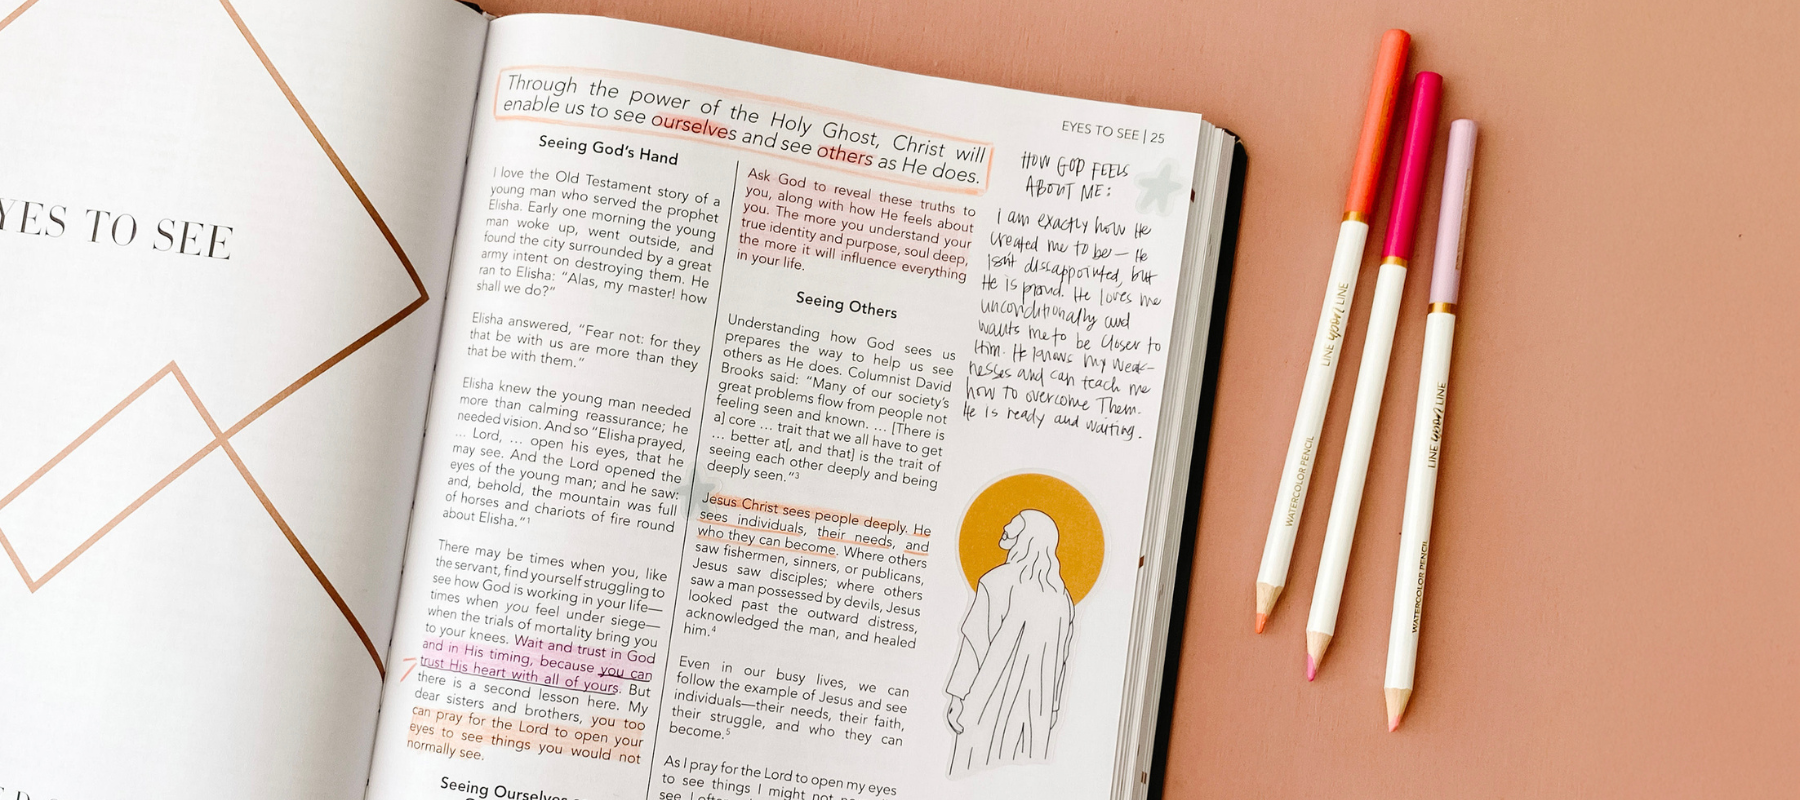 YES TO SEE
EYES TO SEE | 25
Through the power of the Holy Ghost, Christ will
enable us to see ourselves and see others as He does.
Seeing God's Hand
I love the Old Testament story of a
young man who served the prophet
Elisha. Early one morning the young
man woke up, went outside, and
found the city surrounded by a great
army intent on destroying them. He
ran to Elisha: "Alas, my master! how
shall we do?"
Elisha answered, "Fear not: for they
that be with us are more than they
that be with them."
Elisha knew the young man needed
more than calming reassurance; he
needed vision. And so "Elisha prayed,
... Lord, ... open his eyes, that he
may see. And the Lord opened the
eyes of the young man; and he saw:
and, behold, the mountain was full
of horses and chariots of fire round
about Elisha."1
There may be times when you, like
the servant, find yourself struggling to
see how God is working in your life—
times when you feel under siege—
when the trials of mortality bring you
to your knees. Wait and trust in God
and in His timing, because you can
trust His heart with all of yours. But
there is a second lesson here. My
dear sisters and brothers, you too
can pray for the Lord to open your
eyes to see things you would not
normally see.
Seeing Ourselves
Ask God to reveal these truths to
you, along with how He feels about
you. The more you understand your
true identity and purpose, soul deep,
the more it will influence everything
in your life.
Seeing Others
Understanding how God sees us
prepares the way to help us see
others as He does. Columnist David
Brooks said: "Many of our society's
great problems flow from people not
feeling seen and known. ... [There is
a] core ... trait that we all have to get
... better at[, and that] is the trait of
seeing each other deeply and being
deeply seen."3
Jesus Christ sees people deeply. He
sees individuals, their needs, and
who they can become. Where others
saw fishermen, sinners, or publicans,
Jesus saw disciples; where others
saw a man possessed by devils, Jesus
looked past the outward distress,
acknowledged the man, and healed
him.4
Even in our busy lives, we can
follow the example of Jesus and see
individuals—their needs, their faith,
their struggle, and who they can
become.5
As I pray for the Lord to open my eyes
to see things I might not
see, I often
HOW GOD FEELS
ABOUT ME:
i am exactly how He
created me to be— He
isn't disappointed, but
He is proud. He loves me
unconditionally and
wants me to be closer to
Him. He knows my weak-
nesses and can teach me
how to overcome Them.
He is ready and waiting.
LINE upon LINE
WATERCOLOR PENCIL
LINE upon LINE
WATERCOLOR PENCIL